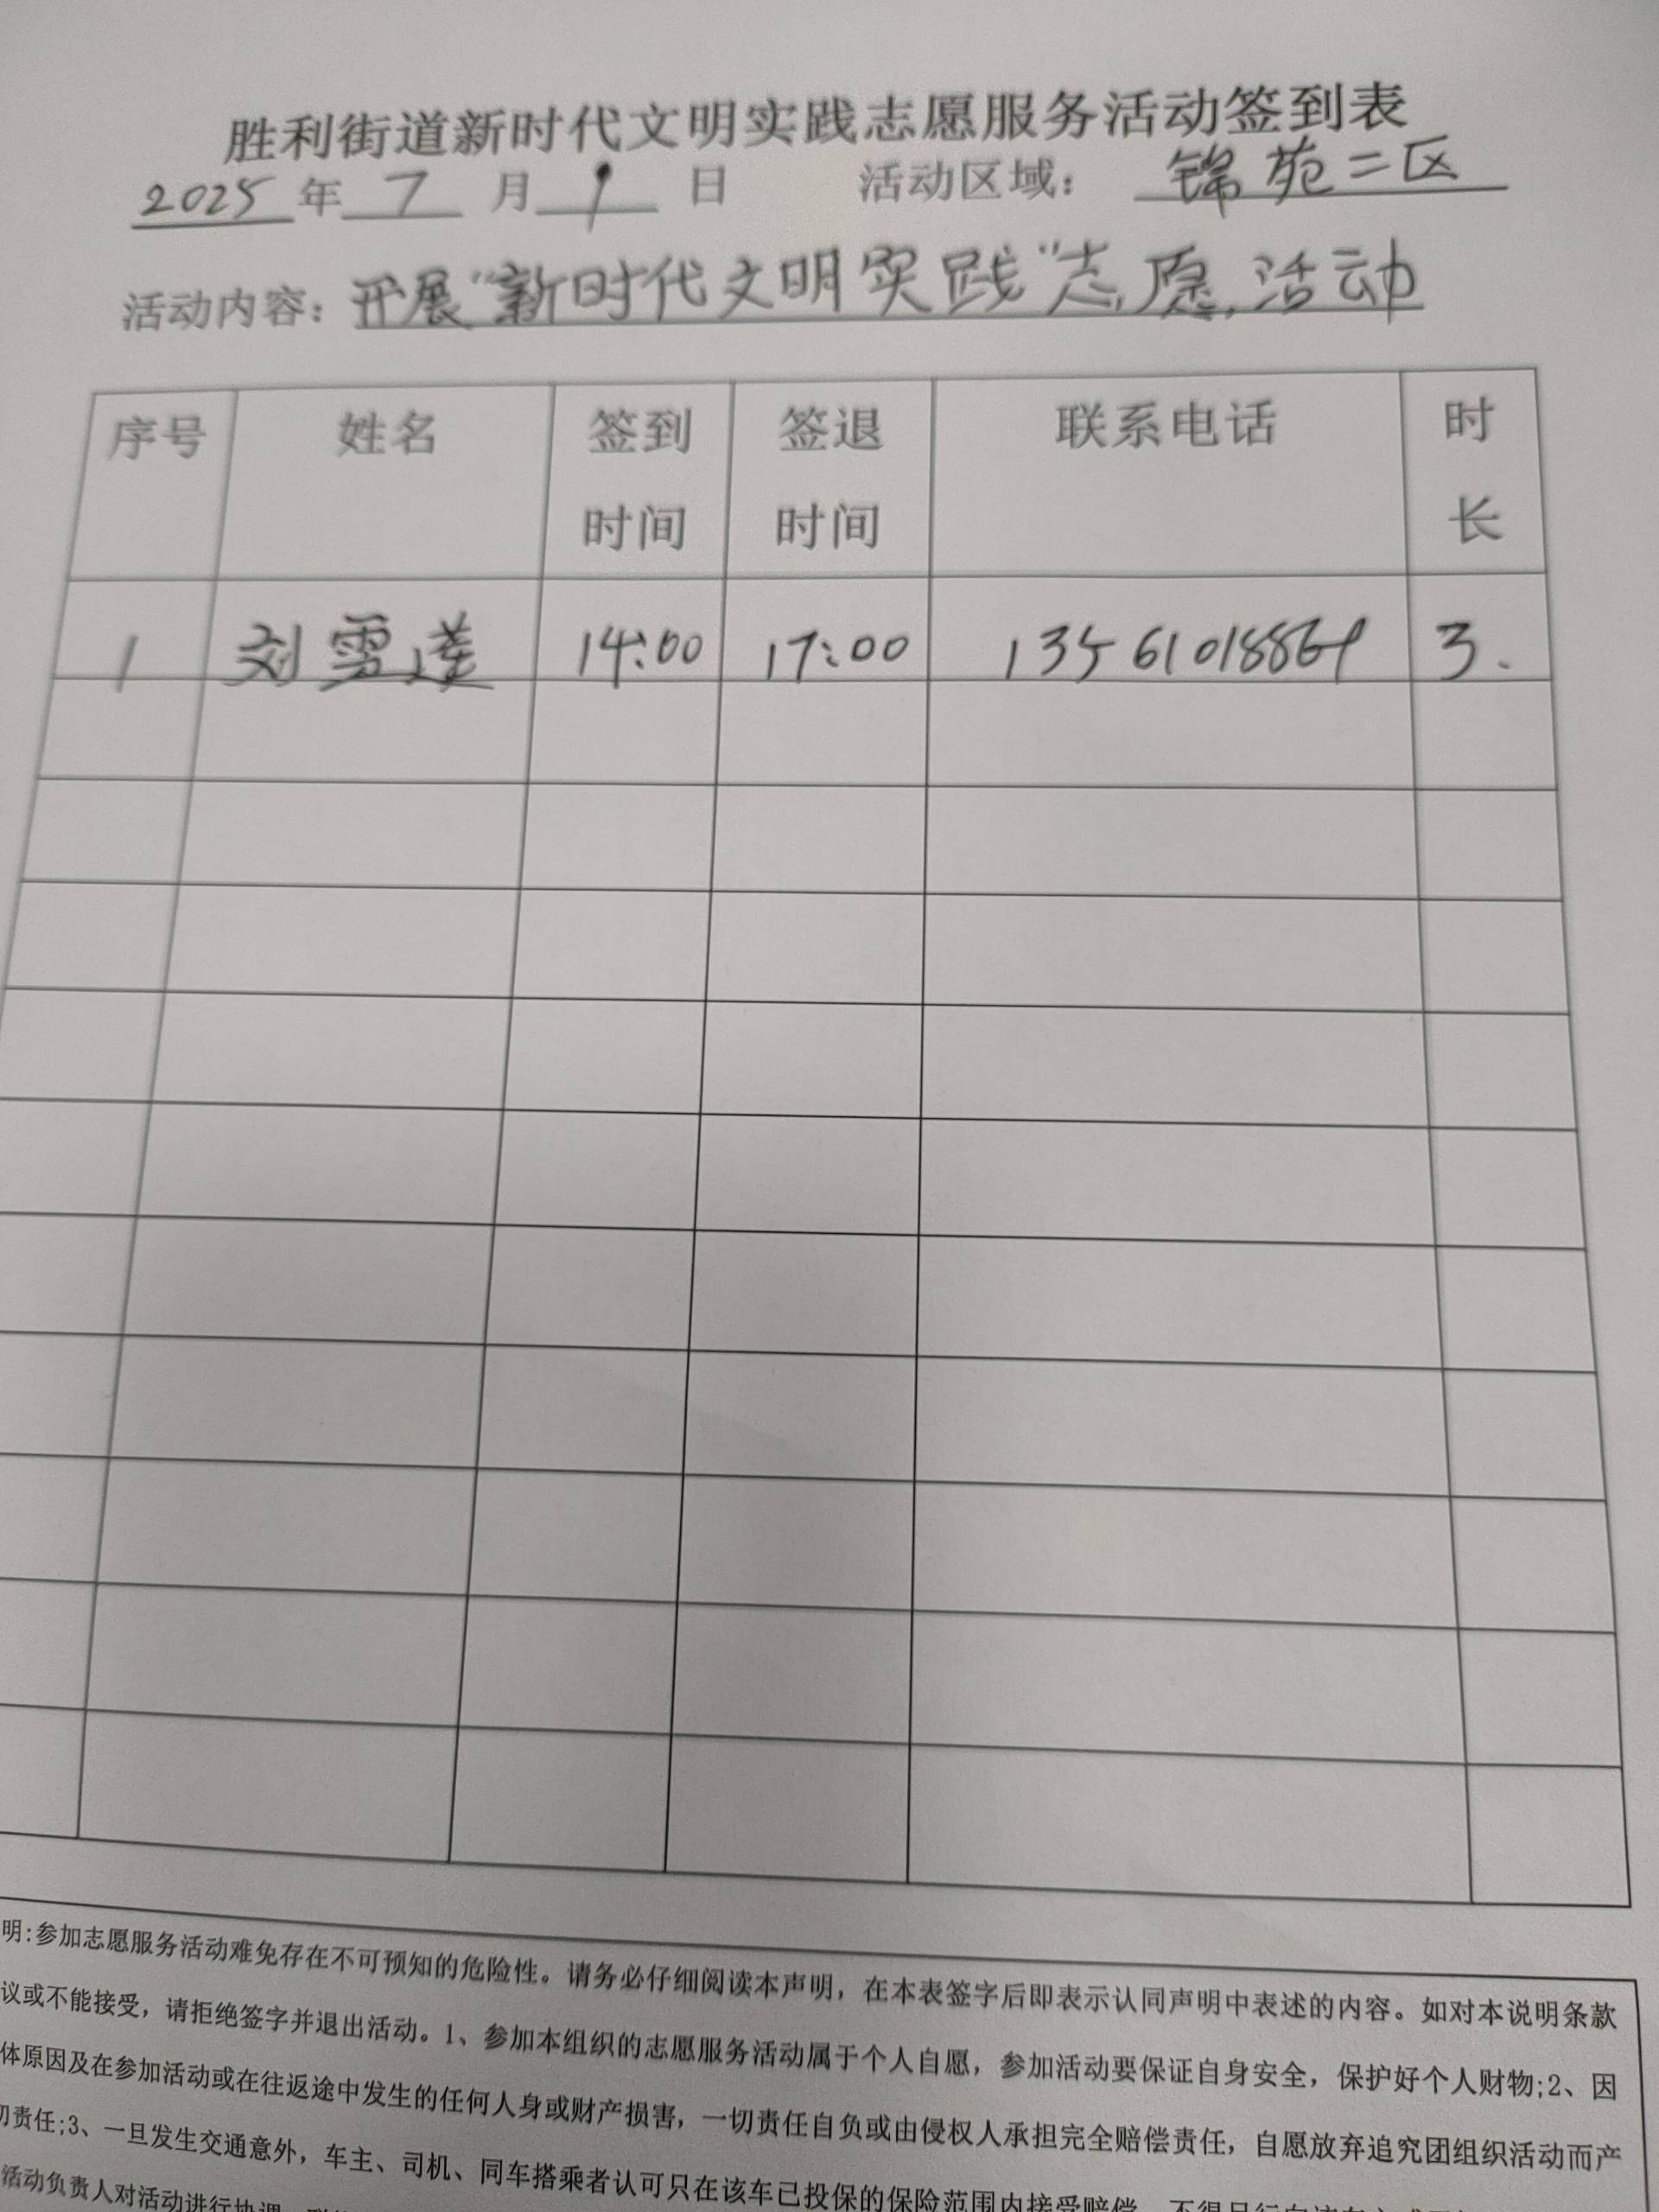 胜利街道新时代文明实践志愿服务活动签到表
2025年 7 月 1 日 活动区域： 锦苑二区
活动内容：开展"新时代文明实践"志愿活动
序号 姓名 签到时间 签退时间 联系电话 时长
1 刘雪莲 14:00 17:00 13561018869 3.
明:参加志愿服务活动难免存在不可预知的危险性。请务必仔细阅读本声明，在本表签字后即表示认同声明中表述的内容。如对本说明条款
议或不能接受，请拒绝签字并退出活动。1、参加本组织的志愿服务活动属于个人自愿，参加活动要保证自身安全，保护好个人财物;2、因
体原因及在参加活动或在往返途中发生的任何人身或财产损害，一切责任自负或由侵权人承担完全赔偿责任，自愿放弃追究团组织活动而产
切责任;3、一旦发生交通意外，车主、司机、同车搭乘者认可只在该车已投保的保险范围内接受赔偿，不得另行向该车
活动负责人对活动进行协调